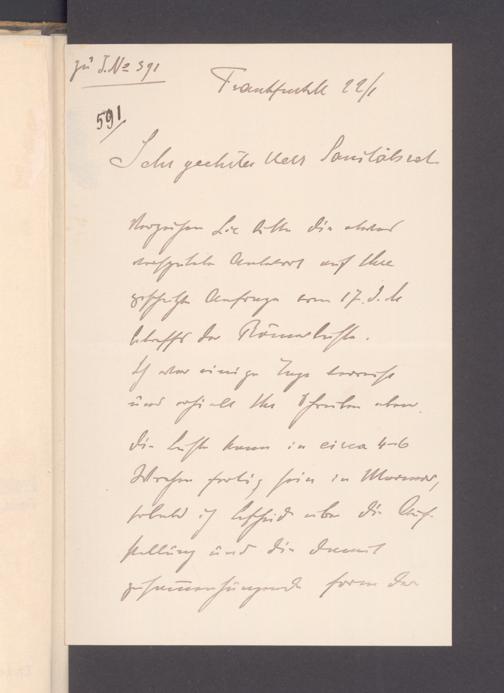 zu J. No 591
Frankfurt M 22/1
591/
Sehr geehrter Herr Sanitätsrat
Verzeihen Sie bitte die etwas
verspätete Antwort auf Ihre
geschätzte Anfrage vom 17. d. M
betreffs der Römerbüste.
Ich war einige Tage verreist
und erhielt Ihr Schreiben eben.
Die Büste kann in circa 4-6
Wochen fertig sein in Marmor,
sobald ich Bescheid über die Auf-
stellung und die damit
zusammenhängende Form der